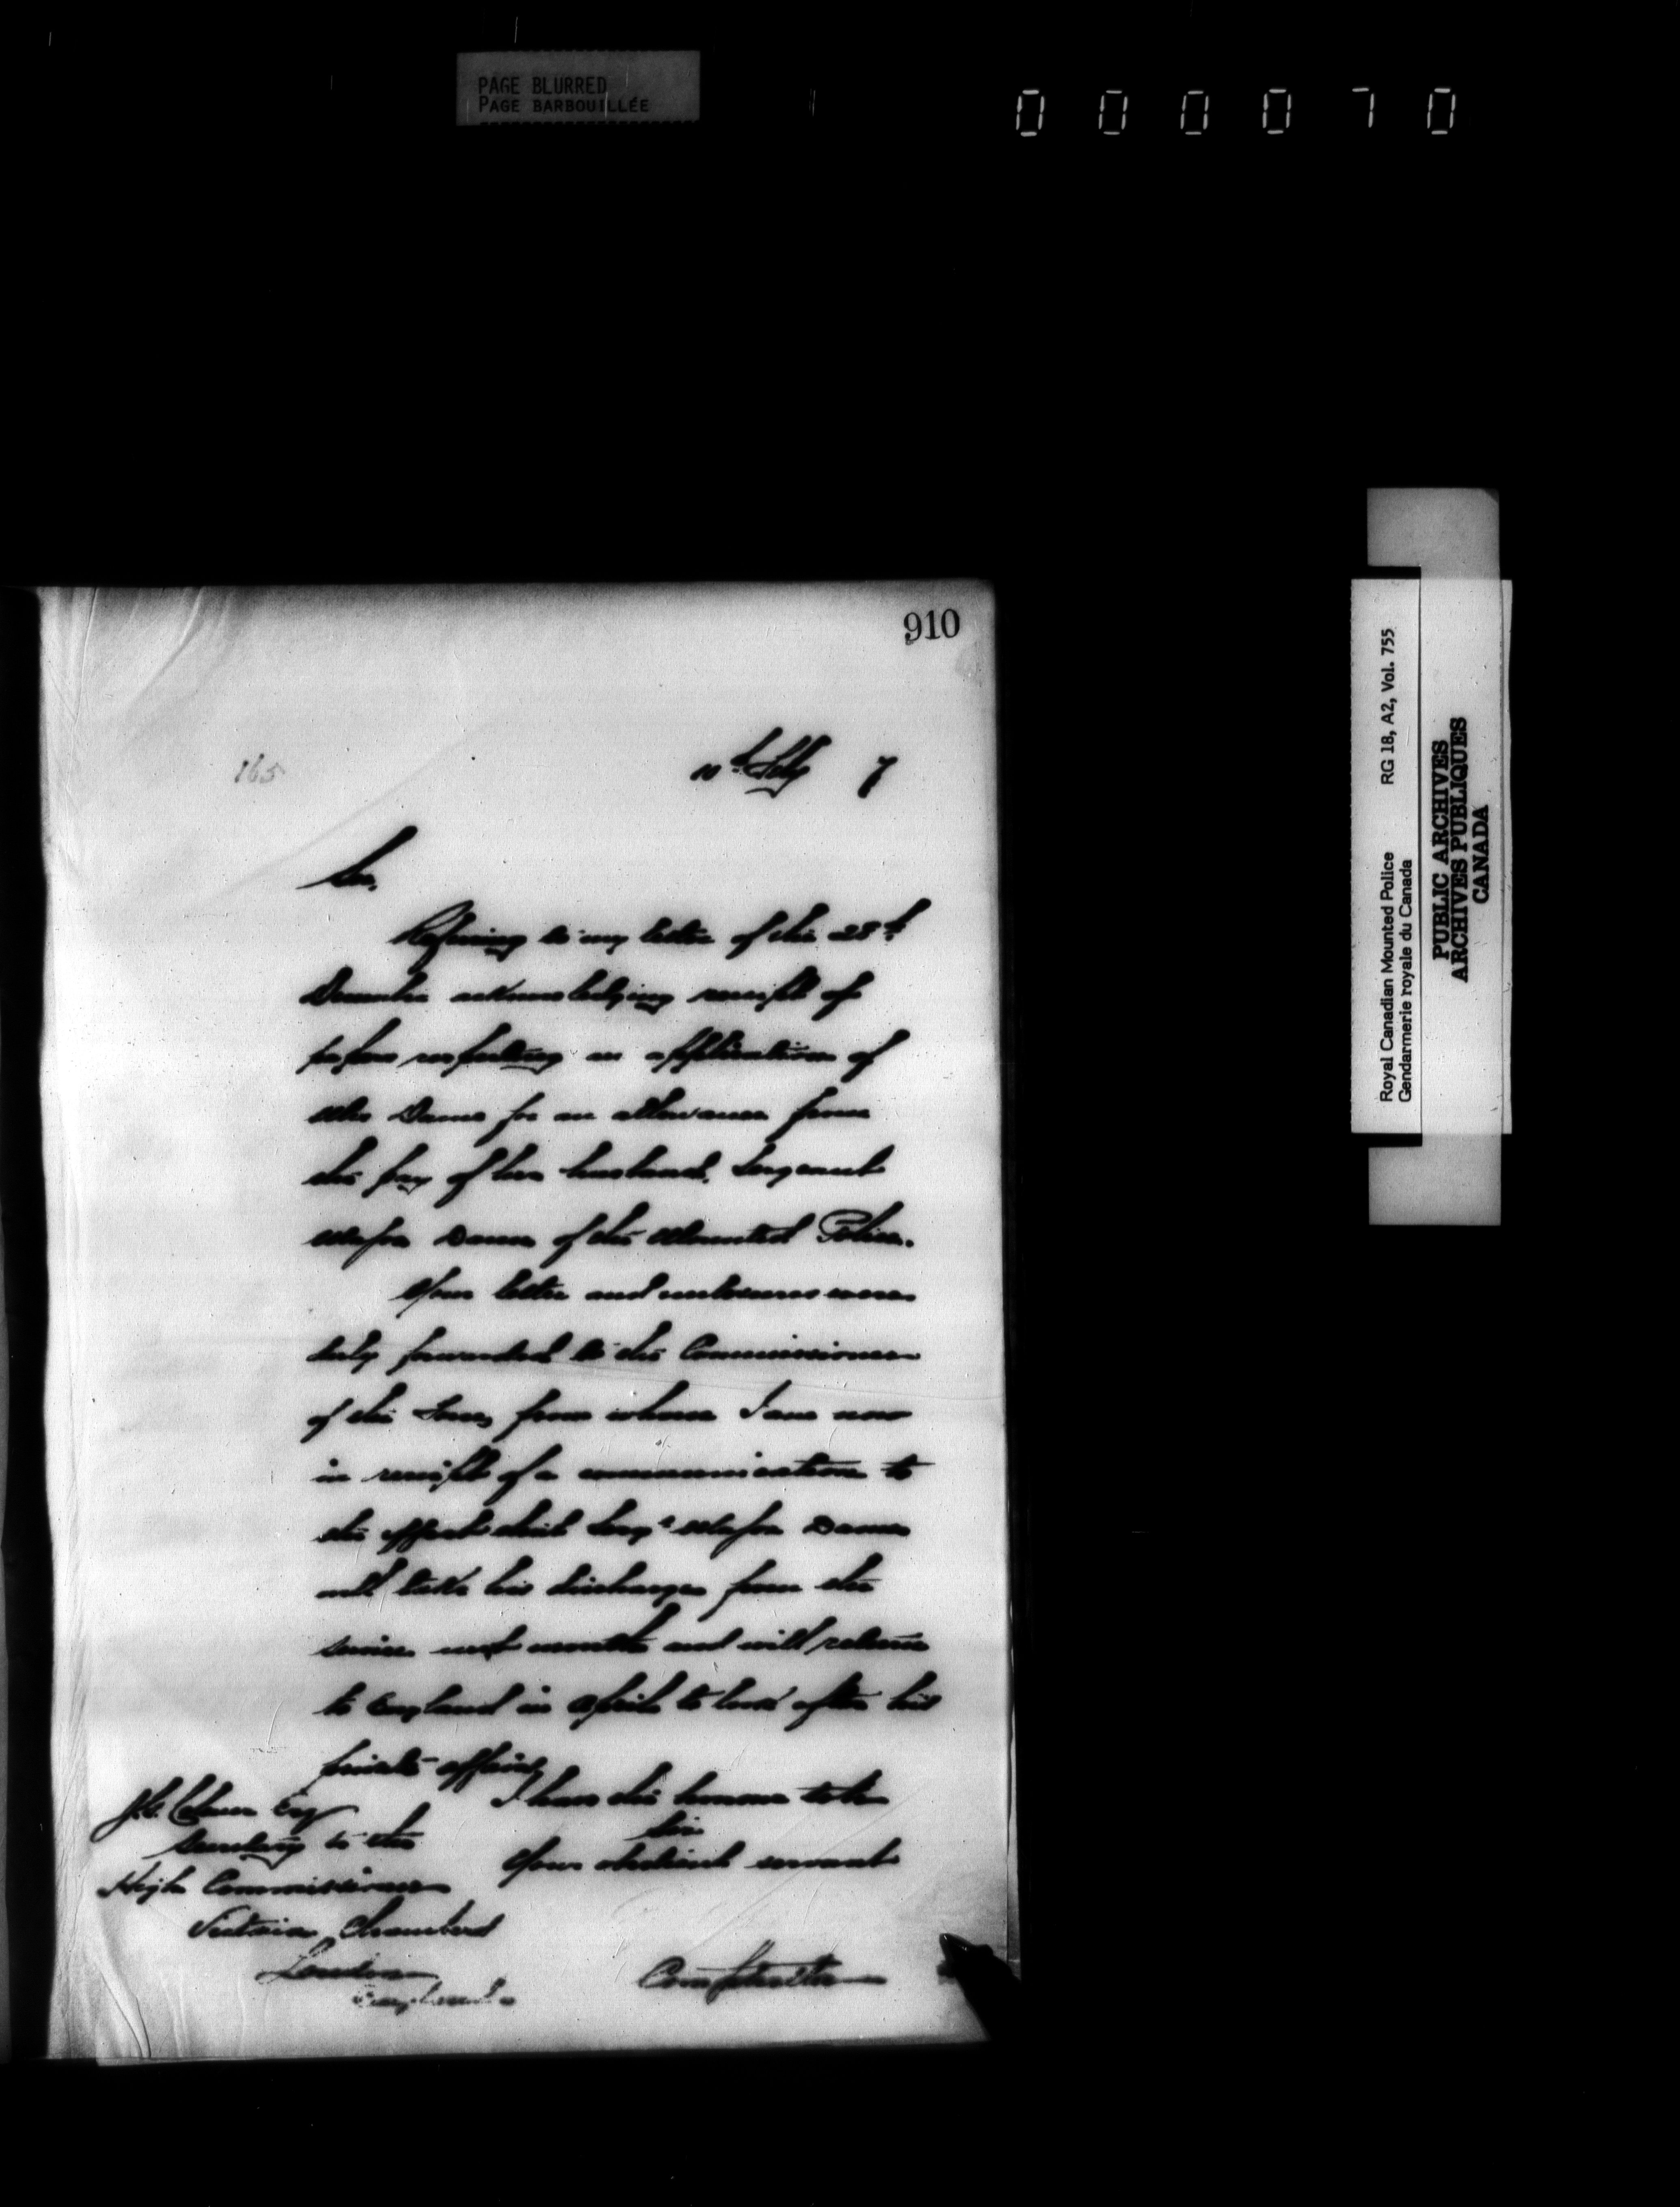 PAGE BLURRED
PAGE BARBOUILLÉE
000070
910
165
10th Feby 7
Sir,
Referring to my letter of the 28th
December acknowledging receipt of
papers respecting an application of
Mrs Dann for an allowance from
the pay of her husband, Sergeant
Major Dann of the Mounted Police.
Your letter and enclosures were
duly forwarded to the Commissioner
of the Force, from whom I am now
in receipt of a communication to
the effect that Sergt Major Dann
will take his discharge from the
service next month and will return
to England in April to look after his
private affairs
I have the honour to be
Sir
Your obedient servant
J.G. Colmer Esq
Secretary to the
High Commissioner
Victoria Chambers
London
England
Comptroller
Royal Canadian Mounted Police RG 18, A2, Vol. 755
Gendarmerie royale du Canada
PUBLIC ARCHIVES
ARCHIVES PUBLIQUES
CANADA